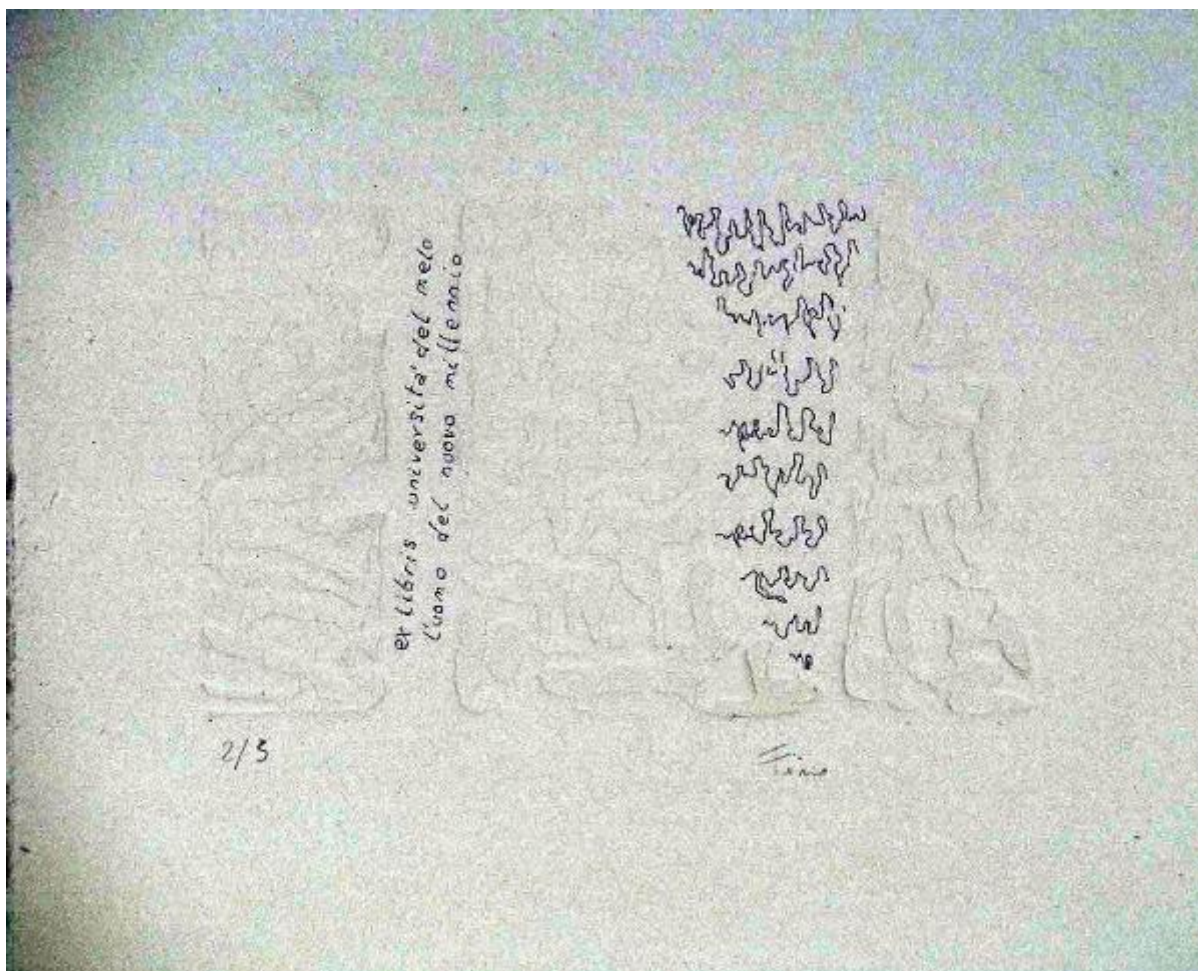 ex libris università del melo
l'uomo del nuovo millennio
2/5